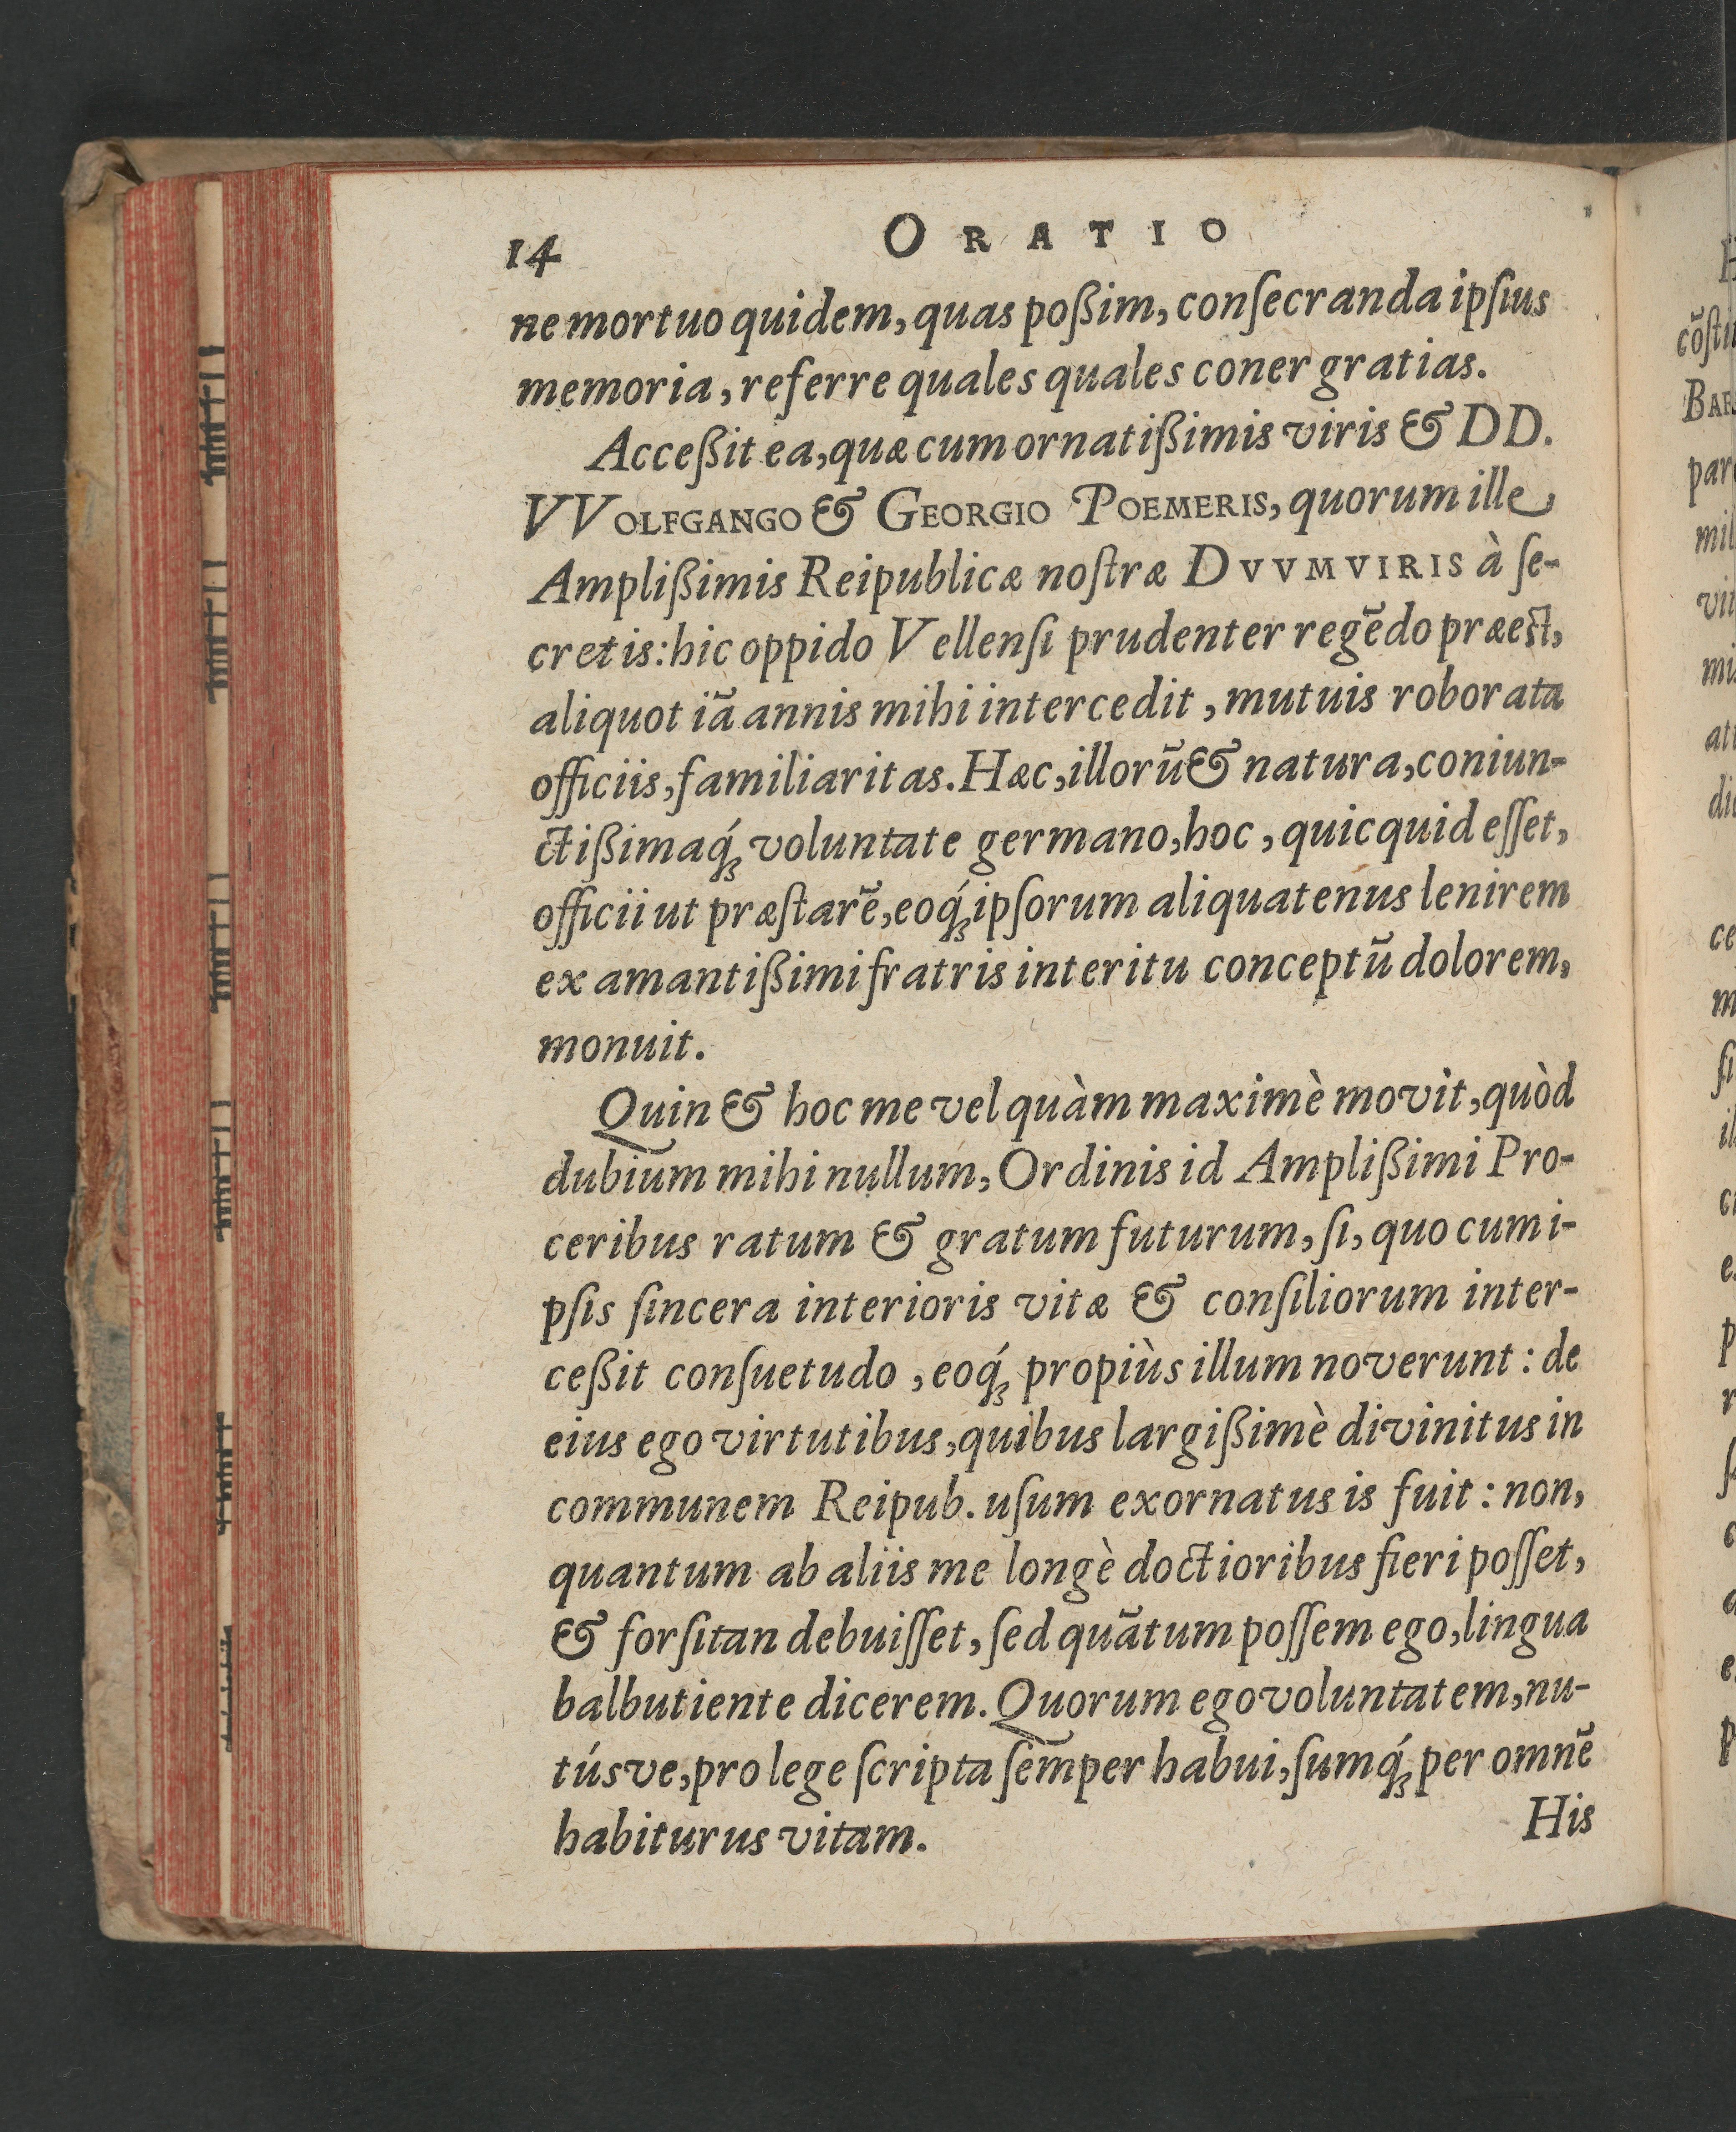 14 ORATIO
ne mortuo quidem, quas poßim, conſecranda ipſius
memoria, referre quales quales coner gratias.
Acceßit ea, quæ cum ornatißimis viris & DD.
VVOLFGANGO & GEORGIO POEMERIS, quorum ille
Amplißimis Reipublicæ noſtræ DVVMVIRIS à ſe-
cretis: hic oppido Vellenſi prudenter regẽdo præeſt,
aliquot iã annis mihi intercedit, mutuis roborata
officiis, familiaritas. Hæc, illorũ & natura, coniun-
ctißimaq́ꝫ voluntate germano, hoc, quicquid eſſet,
officii ut præſtarẽ, eoq́ꝫ ipſorum aliquatenus lenirem
ex amantißimi fratris interitu conceptũ dolorem,
monuit.
Quin & hoc me vel quàm maximè movit, quòd
dubium mihi nullum, Ordinis id Amplißimi Pro-
ceribus ratum & gratum futurum, ſi, quo cum i-
pſis ſincera interioris vitæ & conſiliorum inter-
ceßit conſuetudo, eoq́ꝫ propiùs illum noverunt: de
eius ego virtutibus, quibus largißimè divinitus in
communem Reipub. uſum exornatus is fuit: non,
quantum ab aliis me longè doctioribus fieri poſſet,
& forſitan debuiſſet, ſed quãtum poſſem ego, lingua
balbutiente dicerem. Quorum ego voluntatem, nu-
túsve, pro lege ſcripta ſemper habui, ſumq́ꝫ per omnẽ
habiturus vitam.
His